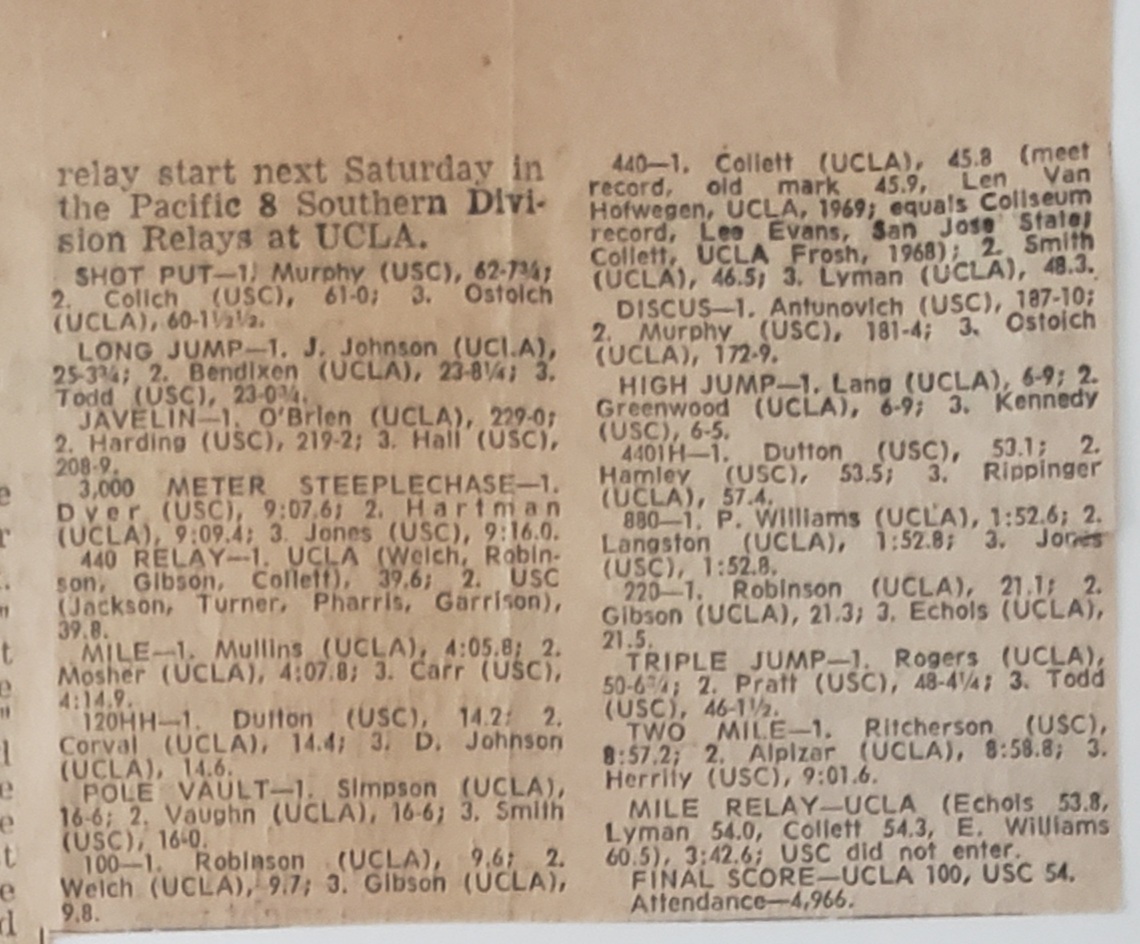 relay start next Saturday in
the Pacific 8 Southern Divi-
sion Relays at UCLA.
SHOT PUT—1. Murphy (USC), 62-7¾;
2. Colich (USC), 61-0; 3. Ostoich
(UCLA), 60-1½½.
LONG JUMP—1. J. Johnson (UCLA),
25-3¾; 2. Bendixen (UCLA), 23-8¼; 3.
Todd (USC), 23-0¾.
JAVELIN—1. O'Brien (UCLA), 229-0;
2. Harding (USC), 219-2; 3. Hall (USC),
208-9.
3,000 METER STEEPLECHASE—1.
Dyer (USC), 9:07.6; 2. Hartman
(UCLA), 9:09.4; 3. Jones (USC), 9:16.0.
440 RELAY—1. UCLA (Welch, Robin-
son, Gibson, Collett), 39.6; 2. USC
(Jackson, Turner, Pharris, Garrison),
39.8.
MILE—1. Mullins (UCLA), 4:05.8; 2.
Mosher (UCLA), 4:07.8; 3. Carr (USC),
4:14.9.
120HH—1. Dutton (USC), 14.2; 2.
Corval (UCLA), 14.4; 3. D. Johnson
(UCLA), 14.6.
POLE VAULT—1. Simpson (UCLA),
16-6; 2. Vaughn (UCLA), 16-6; 3. Smith
(USC), 16-0.
100—1. Robinson (UCLA), 9.6; 2.
Welch (UCLA), 9.7; 3. Gibson (UCLA),
9.8.
440—1. Collett (UCLA), 45.8 (meet
record, old mark 45.9, Len Van
Hofwegen, UCLA, 1969; equals Coliseum
record, Lee Evans, San Jose State;
Collett, UCLA Frosh, 1968); 2. Smith
(UCLA), 46.5; 3. Lyman (UCLA), 48.3.
DISCUS—1. Antunovich (USC), 187-10;
2. Murphy (USC), 181-4; 3. Ostoich
(UCLA), 172-9.
HIGH JUMP—1. Lang (UCLA), 6-9; 2.
Greenwood (UCLA), 6-9; 3. Kennedy
(USC), 6-5.
440IH—1. Dutton (USC), 53.1; 2.
Hamley (USC), 53.5; 3. Rippinger
(UCLA), 57.4.
880—1. P. Williams (UCLA), 1:52.6; 2.
Langston (UCLA), 1:52.8; 3. Jones
(USC), 1:52.8.
220—1. Robinson (UCLA), 21.1; 2.
Gibson (UCLA), 21.3; 3. Echols (UCLA),
21.5.
TRIPLE JUMP—1. Rogers (UCLA),
50-6¾; 2. Pratt (USC), 48-4¼; 3. Todd
(USC), 46-1½.
TWO MILE—1. Ritcherson (USC),
8:57.2; 2. Alpizar (UCLA), 8:58.8; 3.
Herrity (USC), 9:01.6.
MILE RELAY—UCLA (Echols 53.8,
Lyman 54.0, Collett 54.3, E. Williams
60.5), 3:42.6; USC did not enter.
FINAL SCORE—UCLA 100, USC 54.
Attendance—4,966.